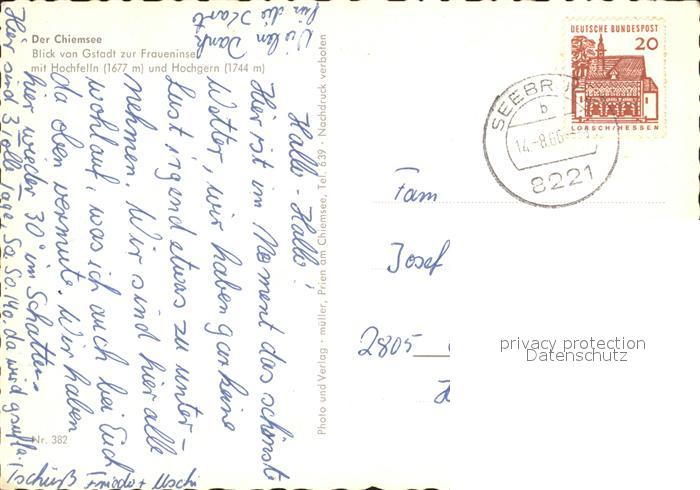 Der Chiemsee
Blick von Gstadt zur Fraueninsel
mit Hochfelln (1677 m) und Hochgern (1744 m)
Vielen Dank
für die Karte
Hallo - Hallo!
Hier ist im Moment das schönste
Wetter, wir haben gar keine
Lust irgend etwas zu unter-
nehmen. Wir sind hier alle
wohlauf, was ich auch bei Euch
da oben vermute. Wir haben
hier wieder 30° im Schatten.
Hier sind 3 tolle Tage, Sa. So. Mo. da wird
Tschüß Frieda + Uschi
Nr. 382
Photo und Verlag · müller, Prien am Chiemsee, Tel. 839 · Nachdruck verboten
DEUTSCHE BUNDESPOST
20
LORSCH/HESSEN
SEEBRUCK
b
14.-8.66
8221
Fam
Josef
2805
privacy protection
Datenschutz